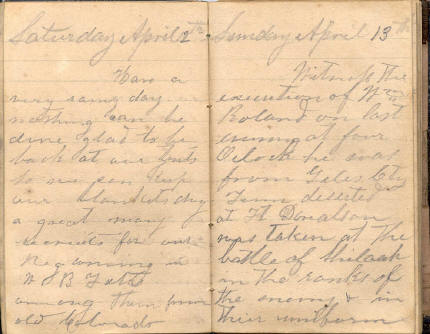 Saturday April 12th
Have a
very rainy day
nothing can be
done glad to be
back at our tents
to we can keep
our blankets dry
a great many
recruits for our
Reg coming in
W S B
among them from
old Colorado
Sunday April 13th
Witness the
execution of Wm
Boland on last
evening at four
Oclock he was
from Giles Cty
Tenn deserted
at Ft Donalson
was taken at the
battle of Shiloah
in the ranks of
the enemy & in
their uniform